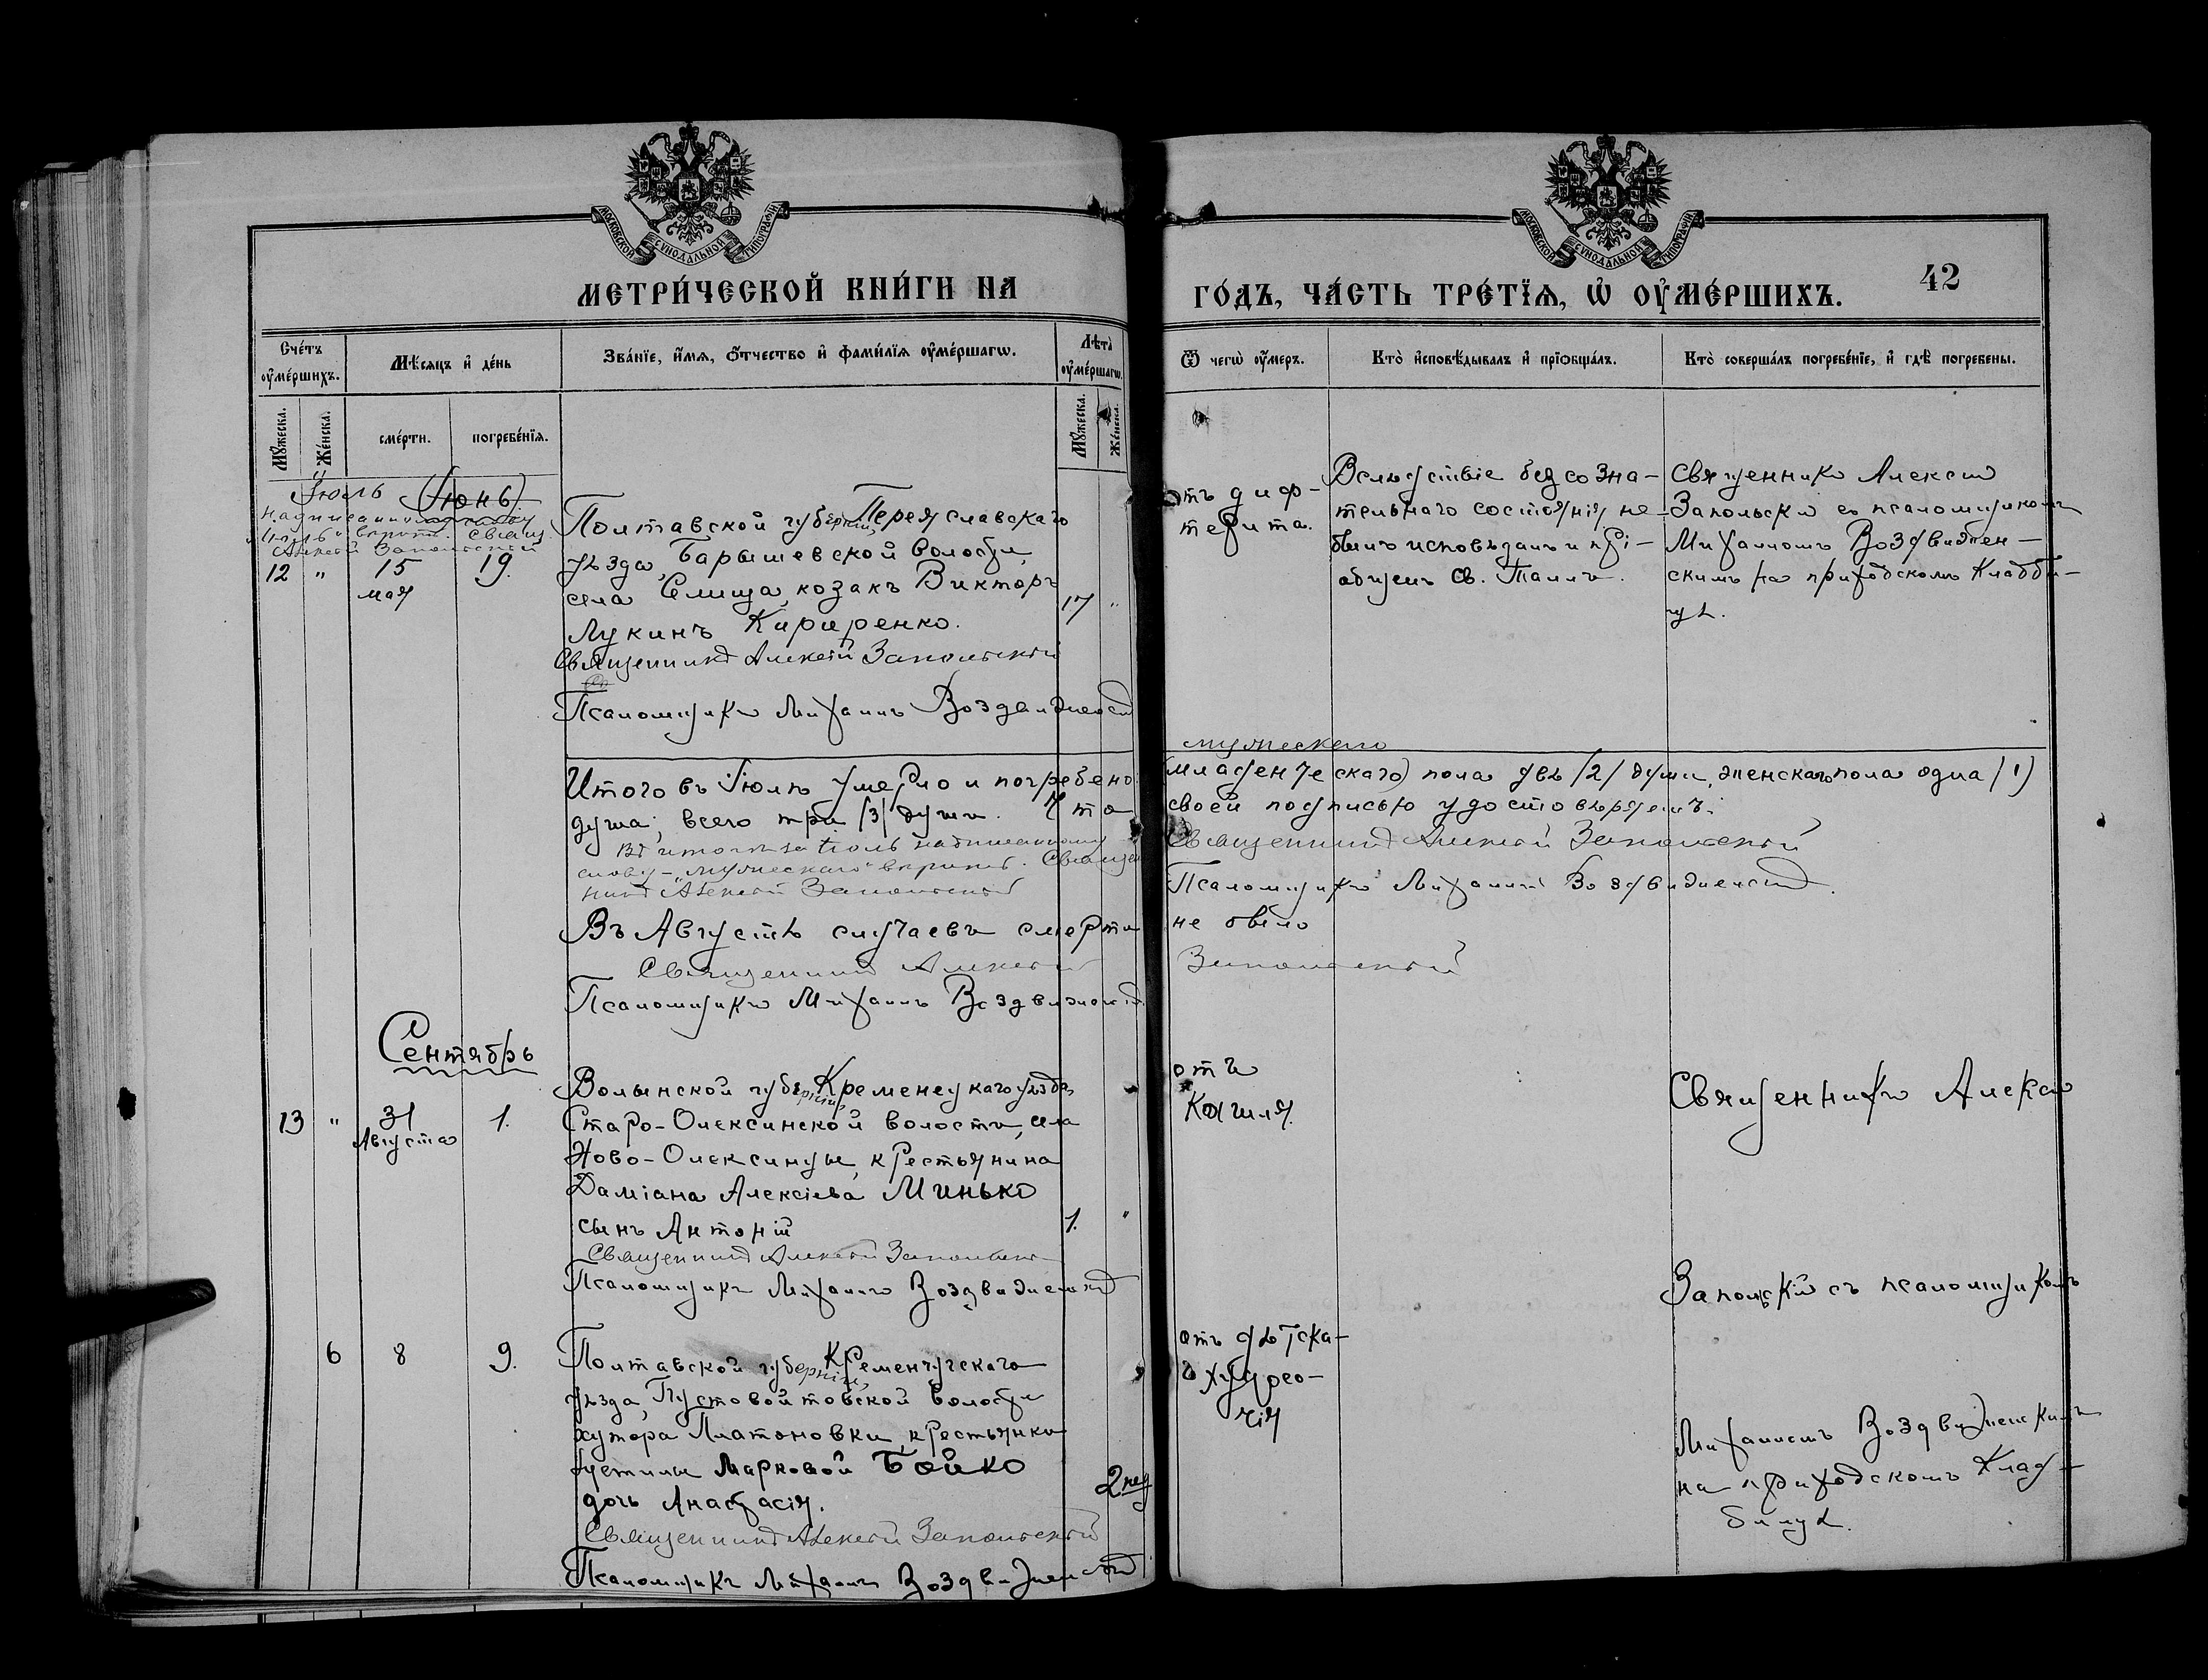 МОСКОВСКОЙ СѴНОДАЛЬНОЙ ТИПОГРАФІИ
МОСКОВСКОЙ СѴНОДАЛЬНОЙ ТИПОГРАФІИ
МЕТРИ́ЧЕСКОЙ КНИ́ГИ НА
ГО́ДЪ, ЧА́СТЬ ТРЕ́ТЇѦ, Ѡ҆ ОУ҆МЕ́РШИХЪ.
42
Сче́тъ оу҆ме́ршихъ.
Мѣ́сѧцъ и҆ де́нь
Зва́нїе, и҆́мѧ, ѻ҆́тчество и҆ фами́лїѧ оу҆ме́ршагѡ.
Лѣ̀та оу҆ме́ршагѡ.
Ѿ чегѡ̀ оу҆́меръ.
Кто̀ и҆сповѣ́дывалъ и҆ прїѡбща́лъ.
Кто̀ соверша́лъ погребе́нїе, и҆ гдѣ̀ погребены.
Мꙋ́жеска.
Же́нска.
сме́рти.
погребе́нїѧ.
Мꙋ́жеска.
Же́нска.
Іюль (Іюнь)
надписанному
"Іюль" вѣрить. Свящ.
Алексій Запольскій
12 " 15 19.
мая
Полтавской губерніи, Переяславскаго
уѣзда, Барышевской волости,
села Селища, козакъ Викторъ
Лукинъ Кириренко.
17 "
Священникъ Алексій Запольскій
Псаломщикъ Михаилъ Воздвиженскій
отъ диф-
терита.
Вслѣдствіе безсозна-
тельнаго состоянія не
былъ исповѣданъ и прі-
общенъ Св. Таинъ.
Священникъ Алексій
Запольскій съ псаломщикомъ
Михаиломъ Воздвижен-
скимъ на приходскомъ кладби-
щѣ.
мужескаго
Итого въ Іюлѣ умерло и погребено (младенческаго) пола двѣ /2/ души, женскаго пола одна /1/
душа; всего три /3/ души. Что своей подписью удостовѣряемъ:
Въ итогѣ за Іюль надписанному
слову - "мужескаго" вѣрить. Священ
никъ Алексій Запольскій
Священникъ Алексій Запольскій
Псаломщикъ Михаилъ Воздвиженскій.
Въ Августѣ случаевъ смерти не было
Священникъ Алексій Запольскій
Псаломщикъ Михаилъ Воздвиженскій.
Сентябрь
13 " 31 1.
Августа
Волынской губерніи, Кременецкаго уѣзда,
Старо-Олексинской волости, села
Ново-Олексинце, крестьянина
Даміана Алексіева Минько
сынъ Антоній
1. "
Священникъ Алексій Запольскій
Псаломщикъ Михаилъ Воздвиженскій
отъ
Кашля.
Священникъ Алексій
Запольскій съ псаломщикомъ
6 8 9.
Полтавской губерніи, Кременчугскаго
уѣзда, Пустовойтовской волости
хутора Платоновки, крестьянки
Устиньи Марковой Бойко
дочь Анастасія.
2 нед
Священникъ Алексій Запольскій
Псаломщикъ Михаилъ Воздвиженскій
отъ дѣтска-
го
Михаиломъ Воздвиженскимъ
на приходскомъ Клад-
бищѣ.